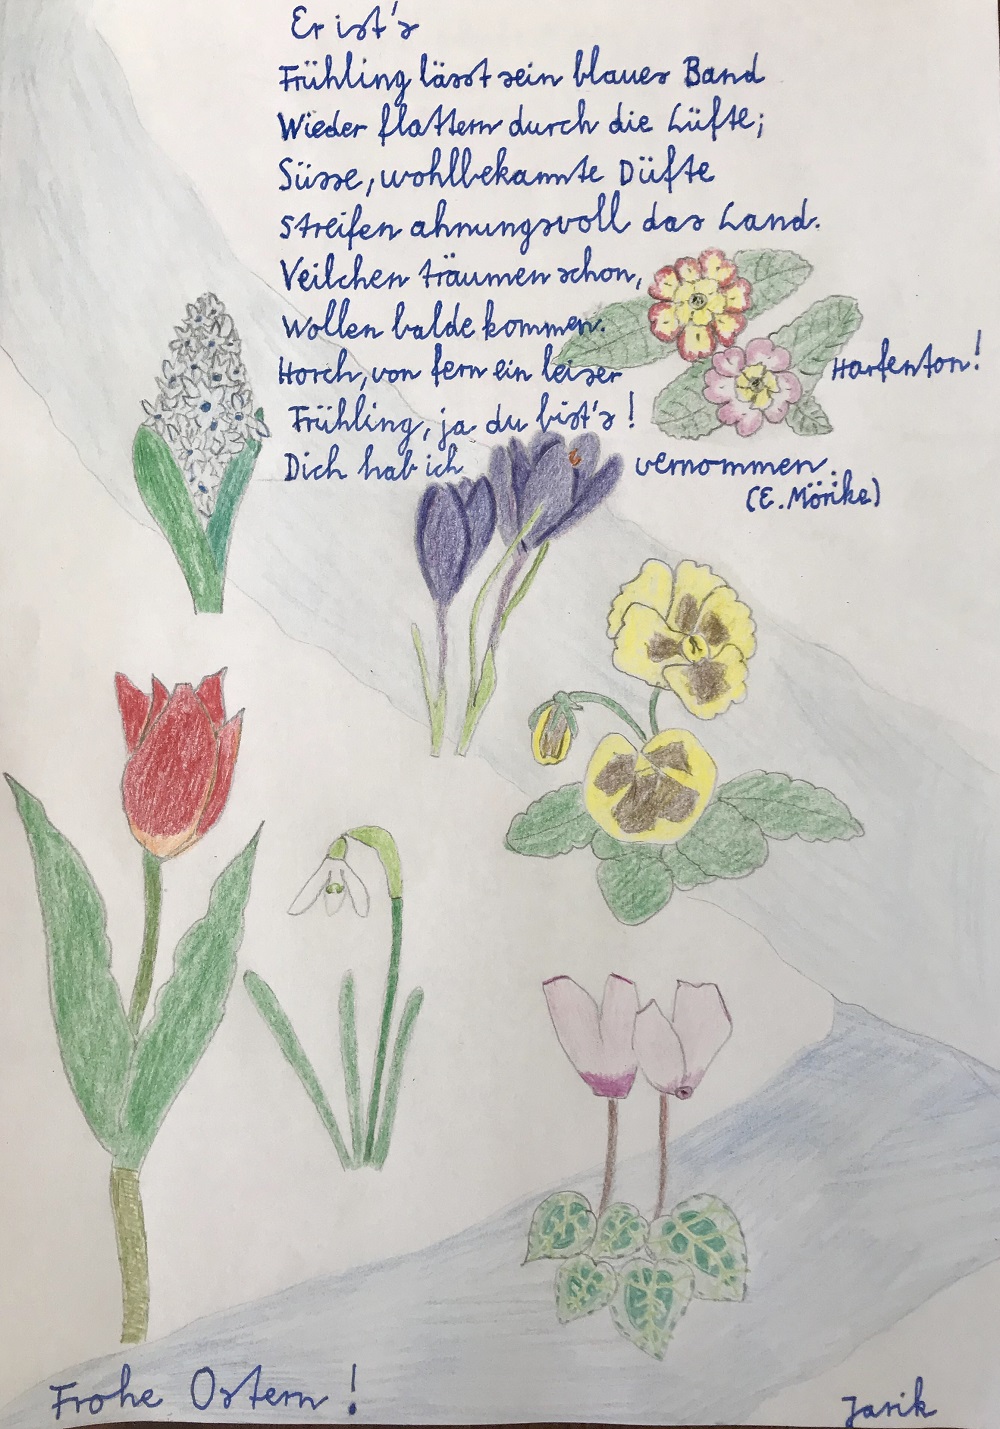 Er ist's
Frühling lässt sein blaues Band
Wieder flattern durch die Lüfte;
Süsse, wohlbekannte Düfte
Streifen ahnungsvoll das Land.
Veilchen träumen schon,
Wollen balde kommen.
Horch, von fern ein leiser Harfenton!
Frühling, ja du bist's!
Dich hab ich vernommen.
(E. Mörike)
Frohe Ostern!
Jarik